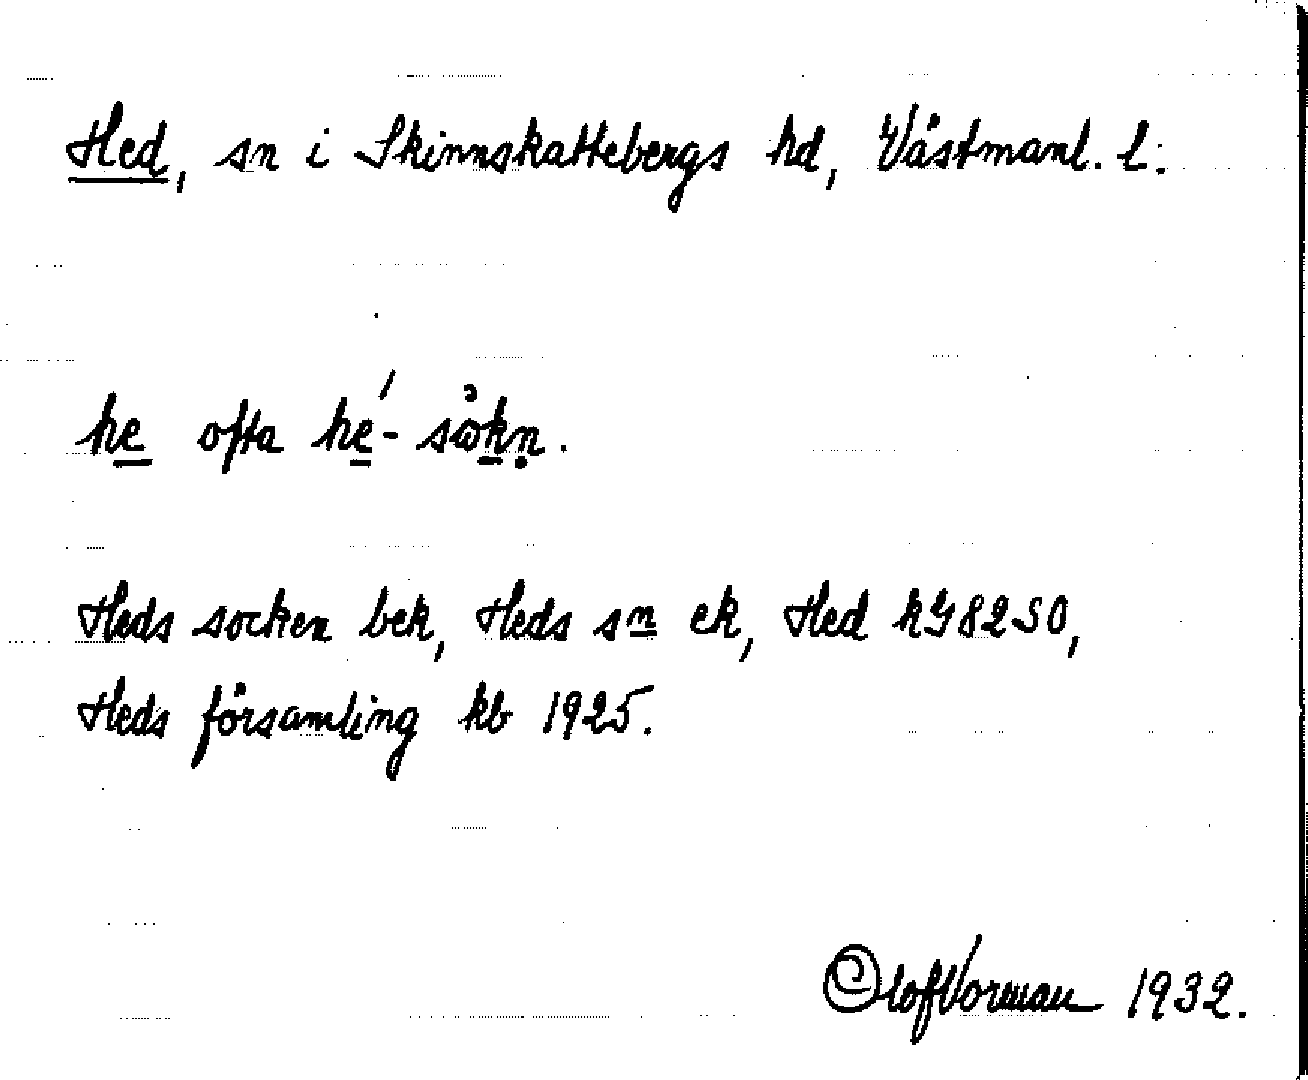 Hed, sn i Skinnskattebergs hd, Västmanl. l.
he ofta hé- sökn.
Heds socken bek, Heds sn ek, Hed kG 8250,
Heds församling kb 1925.
Olof Vorman 1932.